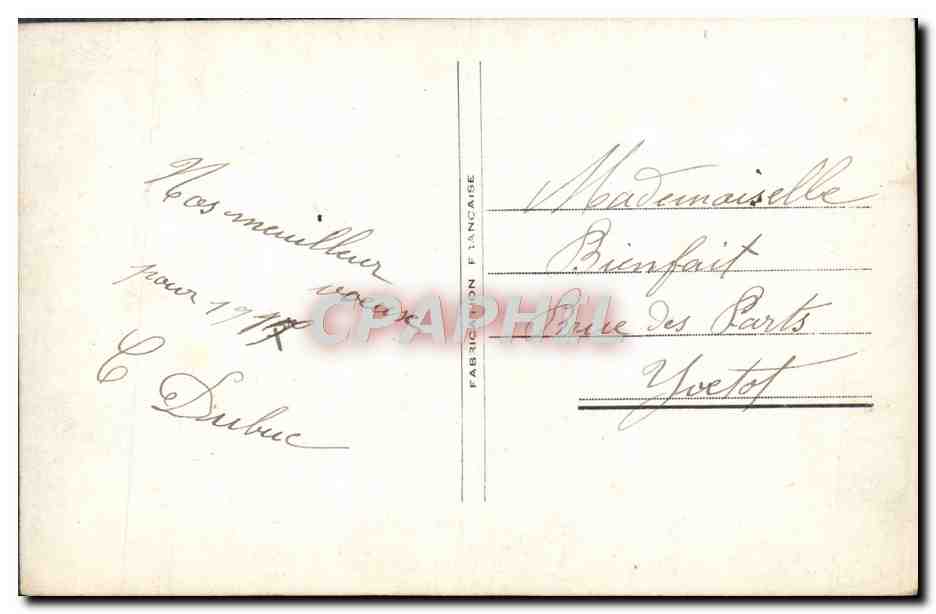 Nos meilleur
voeuxe
pour 19
C Dubuc
FABRICATION FRANCAISE
Mademoiselle
Bienfait
rue des Parts
Yvetot
CPAPHIL